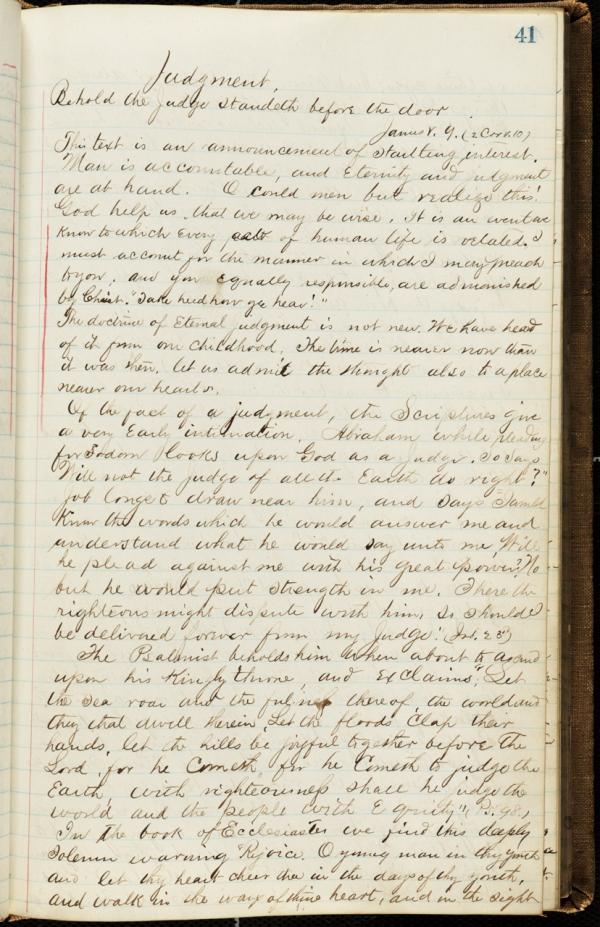 41
Judgment.
Behold the judge standeth before the door.
James V. 9. (2 Cor V. 10)
This text is an announcement of startling interest.
Man is accountable, and Eternity and judgment
are at hand. O could men but realize this!
God help us that we may be wise. It is an event we
know to which every of human life is related. I
must account for the manner in which I may preach
to you, and you equally responsible, are admonished
by Christ. "Take heed how ye hear!"
The doctrine of Eternal judgment is not new. We have heard
of it from our childhood. The time is nearer now than
it was then. let us admit the thought also to a place
nearer our hearts.
Of the fact of a judgment, the Scriptures give
a very Early intimation. Abraham while pleading
for Sodom looks upon God as a judge. So says
"Will not the judge of all the Earth do right?"
Job longs to draw near him, and says "I would
know the words which he would answer me and
understand what he would say unto me. Will
he plead against me with his great power? No
but he would put strength in me. There the
righteous might dispute with him, so should I
be delivered forever from my judge."
The Psalmist beholds him when about to ascend
upon his Kingly throne, and Exclaims, "Let
the sea roar and the fulness thereof, the world and
they that dwell therein. Let the floods clap their
hands, let the hills be joyful together before the
Lord, for he Cometh, for he Cometh to judge the
Earth with righteousness shall he judge the
world and the people with Equity" (Ps. 98.)
In the book of Ecclesiastes we find this deeply
solemn warning "Rejoice, O young man in thy youth
and let thy heart cheer thee in the days of thy youth,
and walk in the ways of thine heart, and in the sight